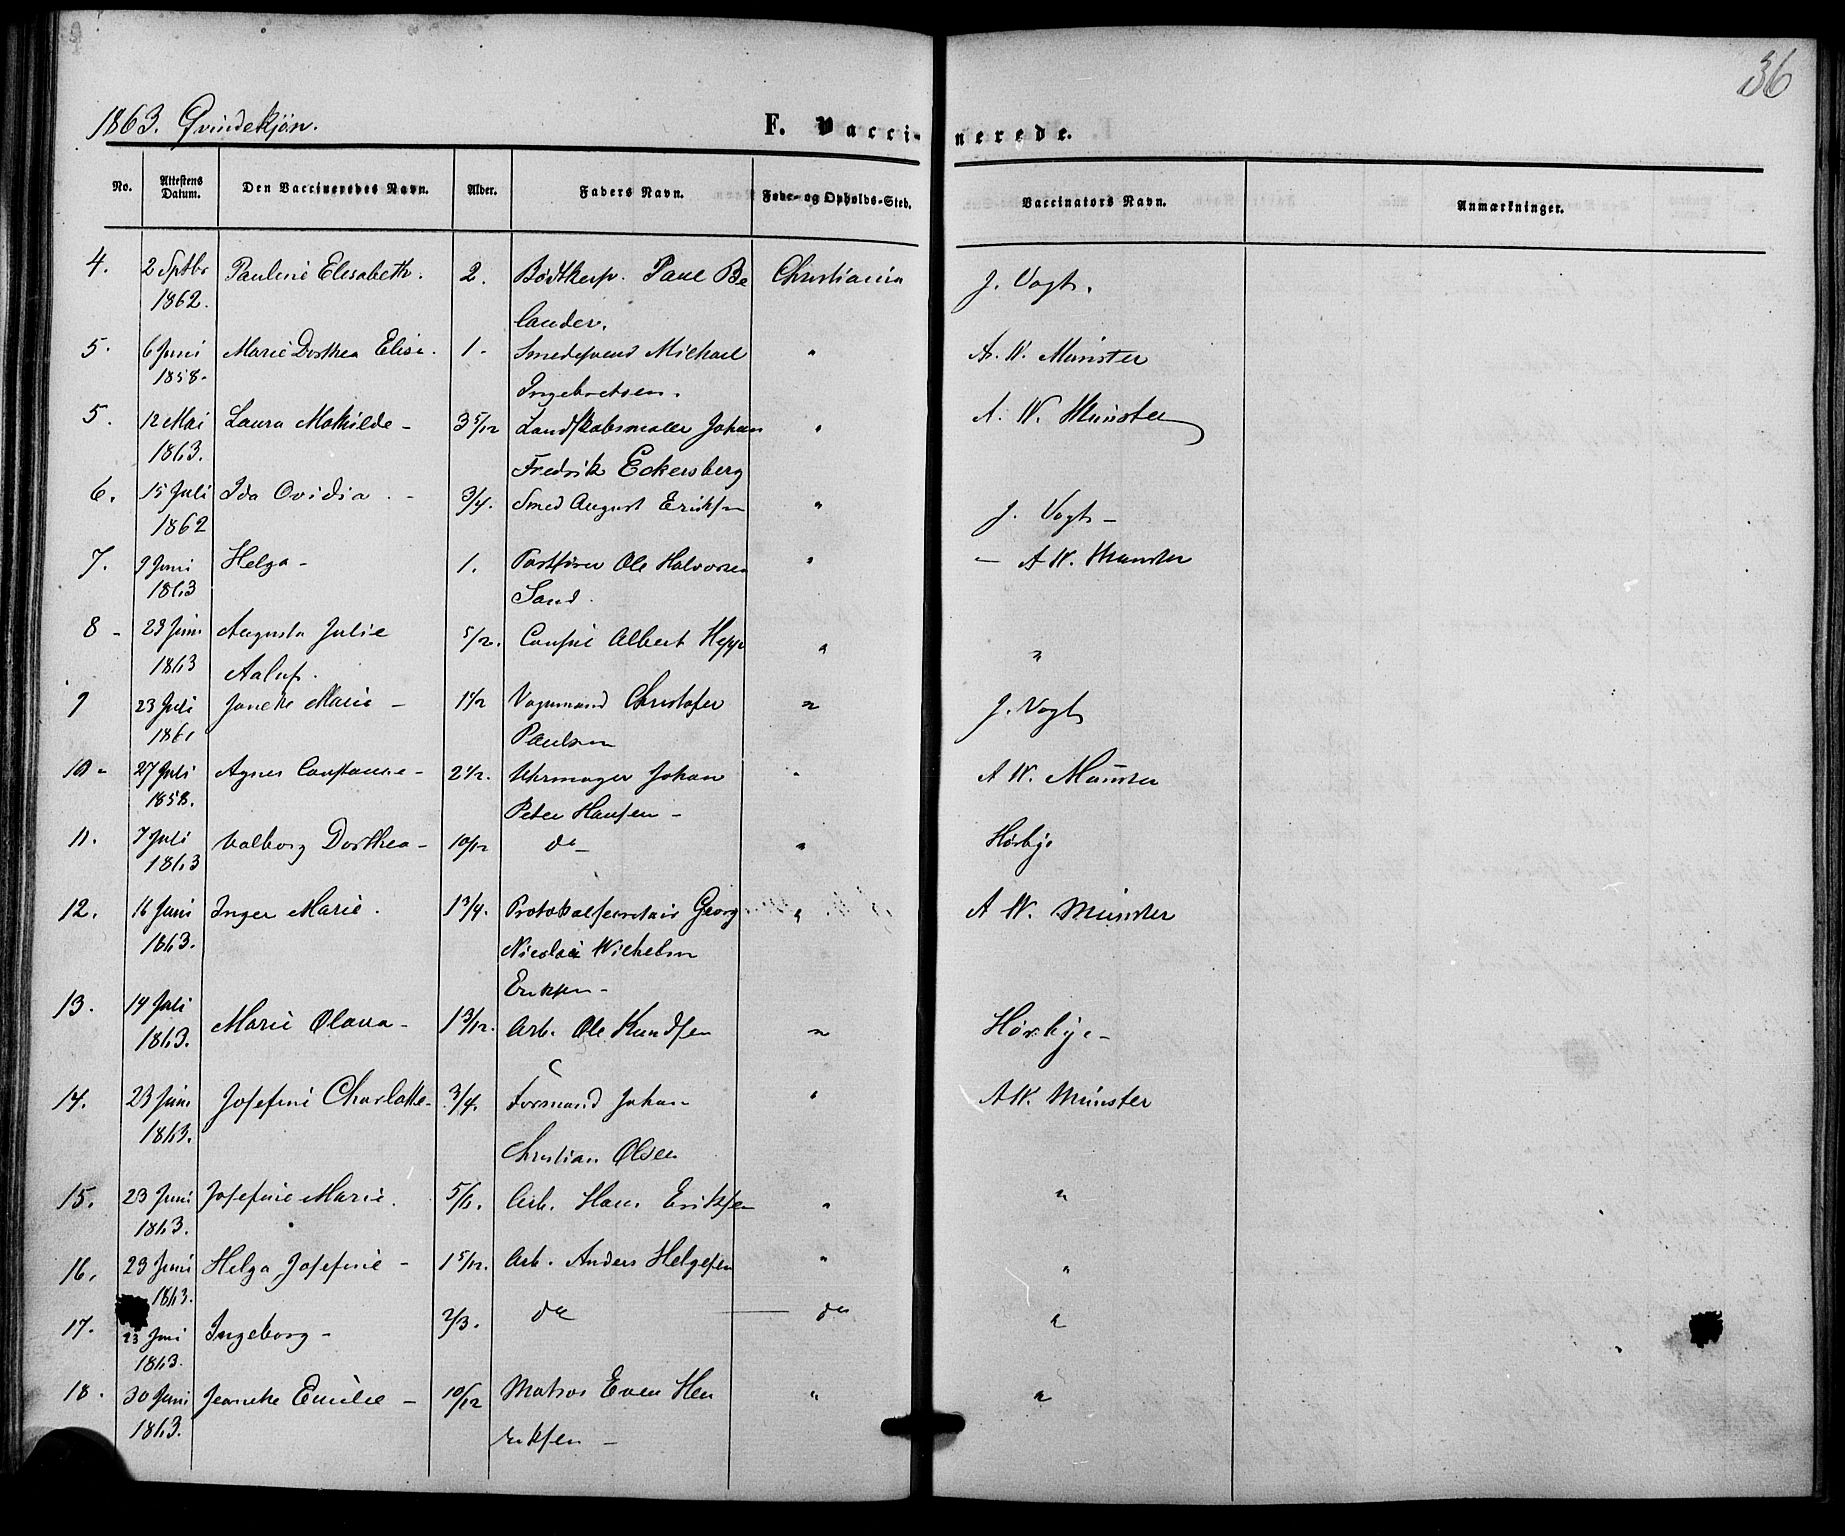 36
1863. Qvindekjøn.
F. Vaccinerede.
No. Attestens Datum. Den Vaccineredes Navn. Alder. Faders Navn. Føde- og Opholds-Sted. Vaccinators Navn. Anmærkninger.
4. 2 Sptbr Pauline Elisabeth. 2. Bødtkersv. Paul Be Christiania J. Vogt.
1862. lander.
5. 6 Juni Marie Dorthea Elise. 1. Smedesvend Michael " A. W. Münster
1858. Ingebretsen.
5. 12 Mai Laura Mathilde - 3 5/12 Landskabsmaler Johan " A. W. Münster
1863. Fredrik Eckersberg
6. 15 Juli Ida Ovidia. - 3/4. Smed August Eriksen " J. Vogt -
1862
7. 9 Juni Helga - 1. Postfører Ole Halvorsen " - A W. Münster
1863 Sand.
8 - 23 Juni Augusta Julie 5/12. Consul Albert Hepp " "
1863 Aaluf.
9 23 Juli Janette Marie - 1 1/2 Vognmand Christofer " J. Vogt
1861 Paulsen
10 - 27 Juli Agnes Constance - 2 1/2. Uhrmager Johan " A W. Münster
1858. Peter Hansen -
11. 7 Juli Valborg Dorthea - 10/12 do - " Hørbye
1863
12. 16 Juni Inger Marie. 1 3/4. Protokolsecretair Georg " A W. Münster
1863. Nicolai Wilhelm
Eriksen -
13. 14 Juli Marie Olava - 1 3/12. Arb. Ole Knudsen " Hørbye -
1863.
14. 23 Juni Josefine Charlotte - 3/4. Formand Johan " A W. Münster
1863. Christian Olsen
15. 23 Juni Josefine Marie. 5/6. Arb. Hans Eriksen " "
1863.
16. 23 Juni Helga Josefine - 1 5/12. Arb. Anders Helgesen " "
1863.
17. 23 Juni Ingeborg - 2/3. do do "
1863.
18. 30 Juni Jeanette Emilie - 10/12 Matros Even Hen " "
1863. riksen -